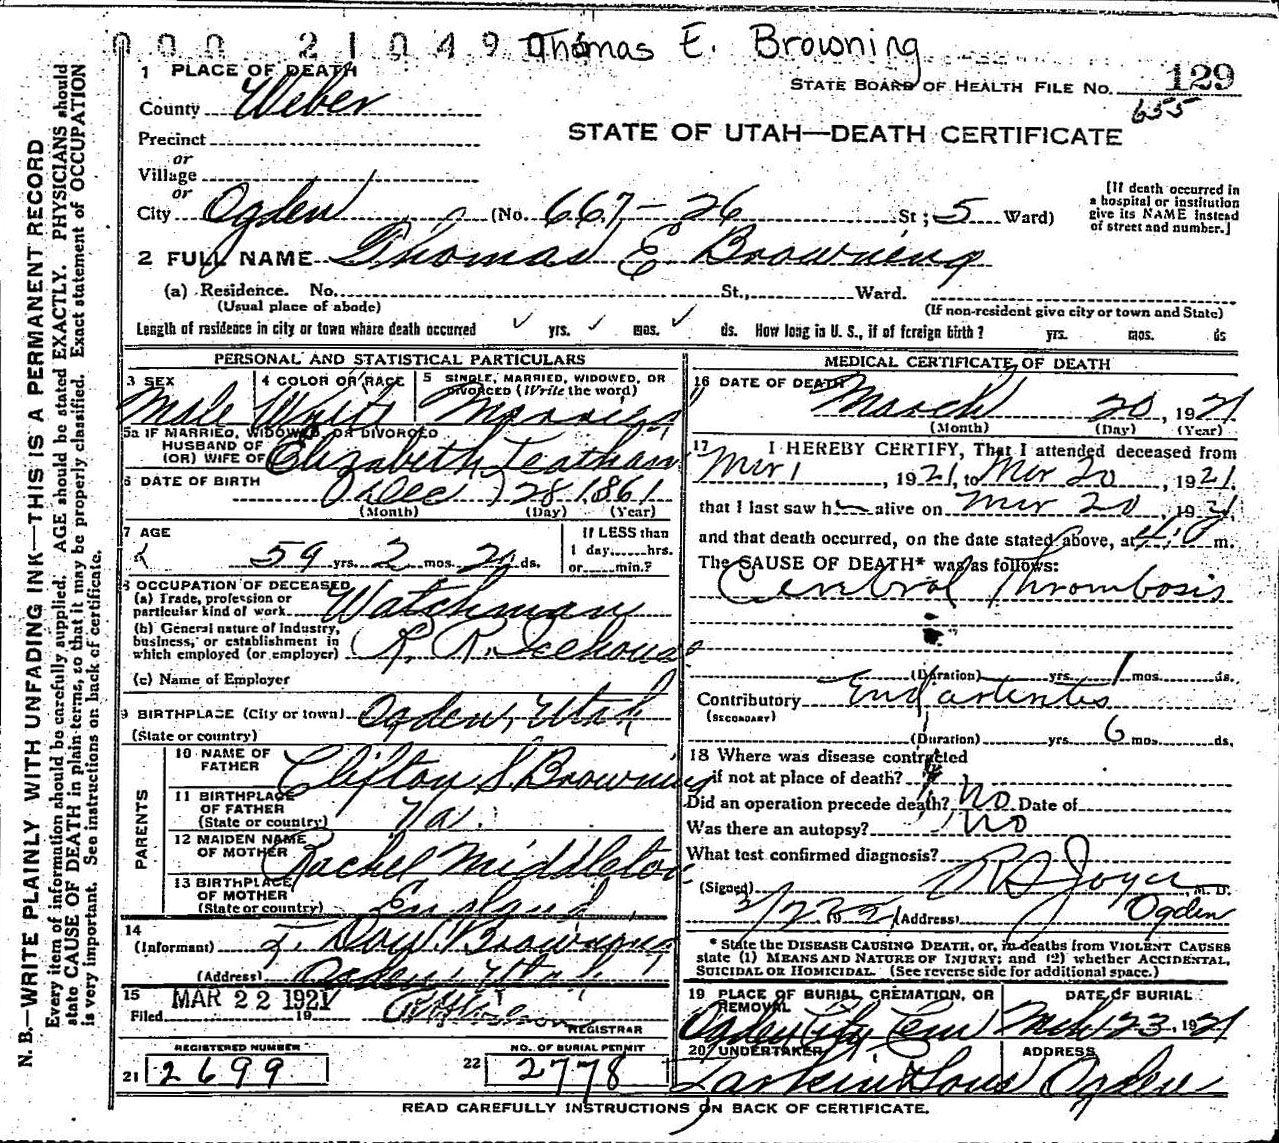 000 21049 Thomas E. Browning
1 PLACE OF DEATH
STATE BOARD OF HEALTH FILE NO. 129
655
County Weber
STATE OF UTAH—DEATH CERTIFICATE
Precinct
or
Village
or
City Ogden (No. 667 - 26 St; 5 Ward)
[If death occurred in
a hospital or institution
give its NAME instead
of street and number.]
2 FULL NAME Thomas E Browning
(a) Residence. No. St., Ward.
(Usual place of abode) (If non-resident give city or town and State)
Length of residence in city or town where death occurred yrs. mos. ds. How long in U. S., if of foreign birth? yrs. mos. ds
PERSONAL AND STATISTICAL PARTICULARS
3 SEX 4 COLOR OR RACE 5 SINGLE, MARRIED, WIDOWED, OR
DIVORCED (Write the word)
Male White Married
5a IF MARRIED, WIDOWED, OR DIVORCED
HUSBAND OF
(OR) WIFE OF Elizabeth Leatham
6 DATE OF BIRTH Dec 28 1861
(Month) (Day) (Year)
7 AGE If LESS than
59 yrs. 2 mos. 20 ds. 1 day,......hrs.
or......min.?
8 OCCUPATION OF DECEASED
(a) Trade, profession or
particular kind of work Watchman
(b) General nature of industry,
business, or establishment in
which employed (or employer) R. R. Icehouse
(c) Name of Employer
9 BIRTHPLACE (City or town) Ogden, Utah
(State or country)
PARENTS
10 NAME OF
FATHER Clifton S Browning
11 BIRTHPLACE
OF FATHER
(State or country) Va.
12 MAIDEN NAME
OF MOTHER Rachel Middleton
13 BIRTHPLACE
OF MOTHER
(State or country) England
14
(Informant) T. Browning
(Address) Ogden, Utah
15 MAR 22 1921
Filed 19
REGISTRAR
REGISTERED NUMBER NO. OF BURIAL PERMIT
21 2699 22 2778
MEDICAL CERTIFICATE OF DEATH
16 DATE OF DEATH
March 20, 1921
(Month) (Day) (Year)
17 I HEREBY CERTIFY, That I attended deceased from
Mar 1, 1921, to Mar 20, 1921.
that I last saw h alive on Mar 20, 1921,
and that death occurred, on the date stated above, at m.
The CAUSE OF DEATH* was as follows:
Cerebral Thrombosis
(Duration) yrs. 1 mos. ds.
Contributory Endarteritis
(SECONDARY)
(Duration) yrs. 6 mos. ds.
18 Where was disease contracted
if not at place of death?
Did an operation precede death? No Date of
Was there an autopsy? No
What test confirmed diagnosis?
(Signed) Joyce, M. D.
3/22 192 (Address) Ogden
* State the DISEASE CAUSING DEATH, or, in deaths from VIOLENT CAUSES
state (1) MEANS AND NATURE OF INJURY; and (2) whether ACCIDENTAL,
SUICIDAL OR HOMICIDAL. (See reverse side for additional space.)
19 PLACE OF BURIAL, CREMATION, OR
REMOVAL DATE OF BURIAL
Ogden City Cem Mch 23, 1921
20 UNDERTAKER ADDRESS
Larkin & Sons Ogden
READ CAREFULLY INSTRUCTIONS ON BACK OF CERTIFICATE.
N. B.—WRITE PLAINLY WITH UNFADING INK—THIS IS A PERMANENT RECORD
Every item of information should be carefully supplied. AGE should be stated EXACTLY. PHYSICIANS should
state CAUSE OF DEATH in plain terms, so that it may be properly classified. Exact statement of OCCUPATION
is very important. See instructions on back of certificate.